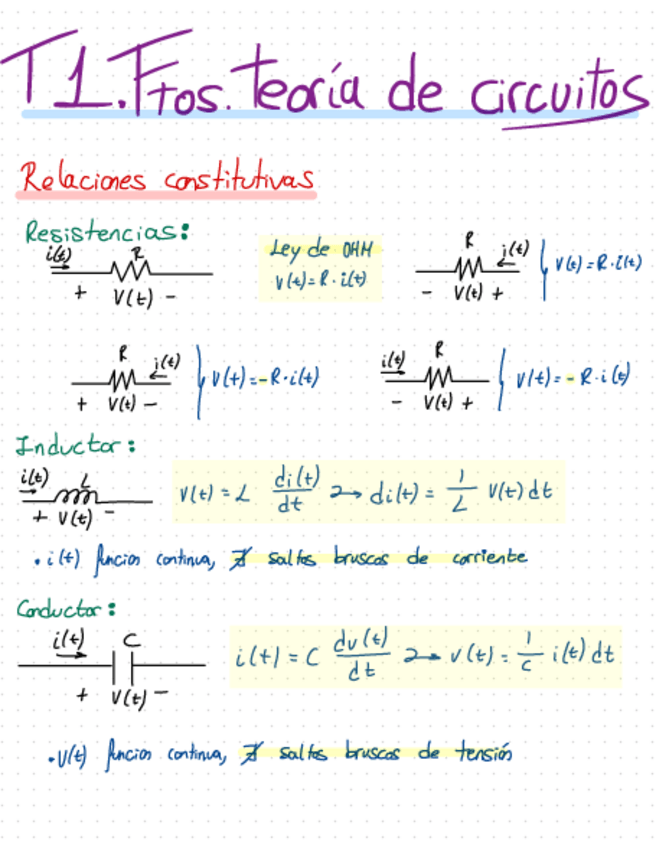 T1. Ftos. teoría de circuitos
Relaciones constitutivas
Resistencias:
i(t) R
+ V(t) -
Ley de OHM
v(t)=R·i(t)
R i(t)
- V(t) +
v(t)=R·i(t)
R i(t)
+ V(t) -
v(t)=-R·i(t)
i(t) R
- V(t) +
v(t)=-R·i(t)
Inductor:
i(t) L
+ V(t) -
v(t) = L di(t)/dt → di(t) = 1/L v(t) dt
· i(t) función continua, ∄ saltos bruscos de corriente
Conductor:
i(t) C
+ V(t) -
i(t) = C dv(t)/dt → v(t) = 1/C i(t) dt
· V(t) función continua, ∄ saltos bruscos de tensión